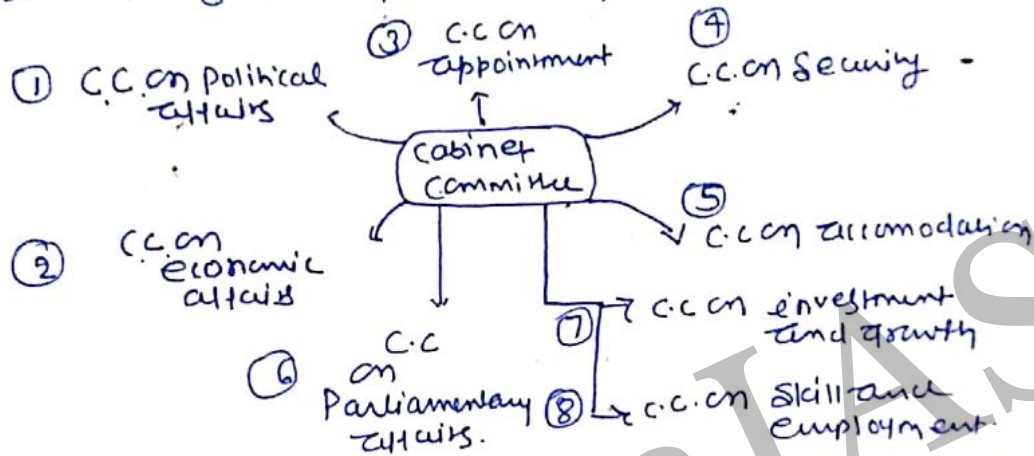 ① C.C. on Political
affairs
③ C.C on
appointment
④
C.C. on Security -
Cabinet
Committee
② C.C. on
economic
affairs
⑤
C.C on accomodation
⑥ C.C
on
Parliamentary
affairs.
⑦ C.C on investment
and growth
⑧ C.C. on Skill and
employment.
IAS